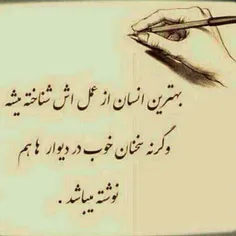 بهترین انسان از عمل اش شناخته میشه
وگرنه سخنان خوب در دیوار ها هم
نوشته میباشد .